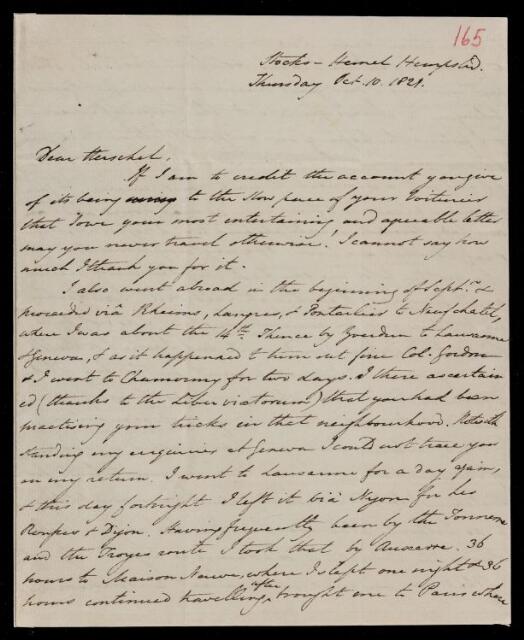 165
Stocks - Hemel Hempstd.
Thursday Oct. 10. 1821.
Dear Herschel,
If I am to credit the account you give
of its being owing to the slow pace of your voituriers
that I owe your most entertaining and agreeable letter
may you never travel otherwise! I cannot say how
much I thank you for it.
I also went abroad in the beginning of Septr. &
proceeded viâ Rheims, Langres, & Pontarlier to Neufchatel,
where I was about the 14th. Thence by Yverdun to Lausanne
& Geneva, & as it happened to turn out fine Col. Gordon
& I went to Chamouny for two days. I there ascertain
ed (thanks to the Liber viatorum) that you had been
practising your tricks in that neighbourhood. Notwith
standing my enquiries at Geneva I could not trace you
on my return. I went to Lausanne for a day again,
& this day fortnight I left it viâ Nyon for Les
Rousses & Dijon. Having frequently been by the Tonnerre
and the Troyes route I took that by Auxerre. 36
hours to Maison Neuve, where I slept one night & 36
hours continued travelling, after brought me to Paris where